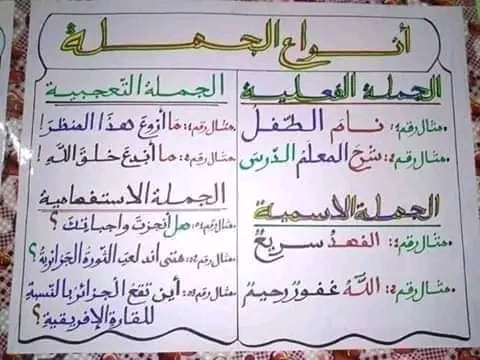 أنواع الجملة
الجملة الفعلية
مثال رقم 1: نامَ الطّفلُ
مثال رقم 2: شرحَ المعلمُ الدّرسَ
الجملة الاسمية
مثال رقم 1: الفهدُ سريعٌ
مثال رقم 2: اللّهُ غفورٌ رحيمٌ
الجملة التّعجبية
مثال رقم 1: مَا أَرْوَعَ هذَا المنظرَ!
مثال رقم 2: ما أبْدَعَ خلقَ اللّهِ!
الجملة الاستفهامية
مثال رقم 1: هل أنجزتَ واجباتكَ؟
مثال رقم 2: متى اندلعت الثورةُ الجزائريةُ؟
مثال رقم 3: أين تقعُ الجزائرُ بالنّسبةِ
للقارةِ الإفريقيةِ؟